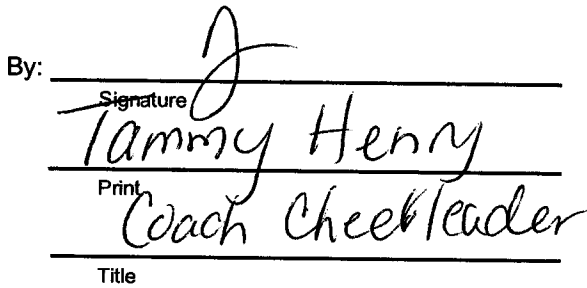 By:
Signature
Tammy Henry
Print
Coach Cheerleader
Title